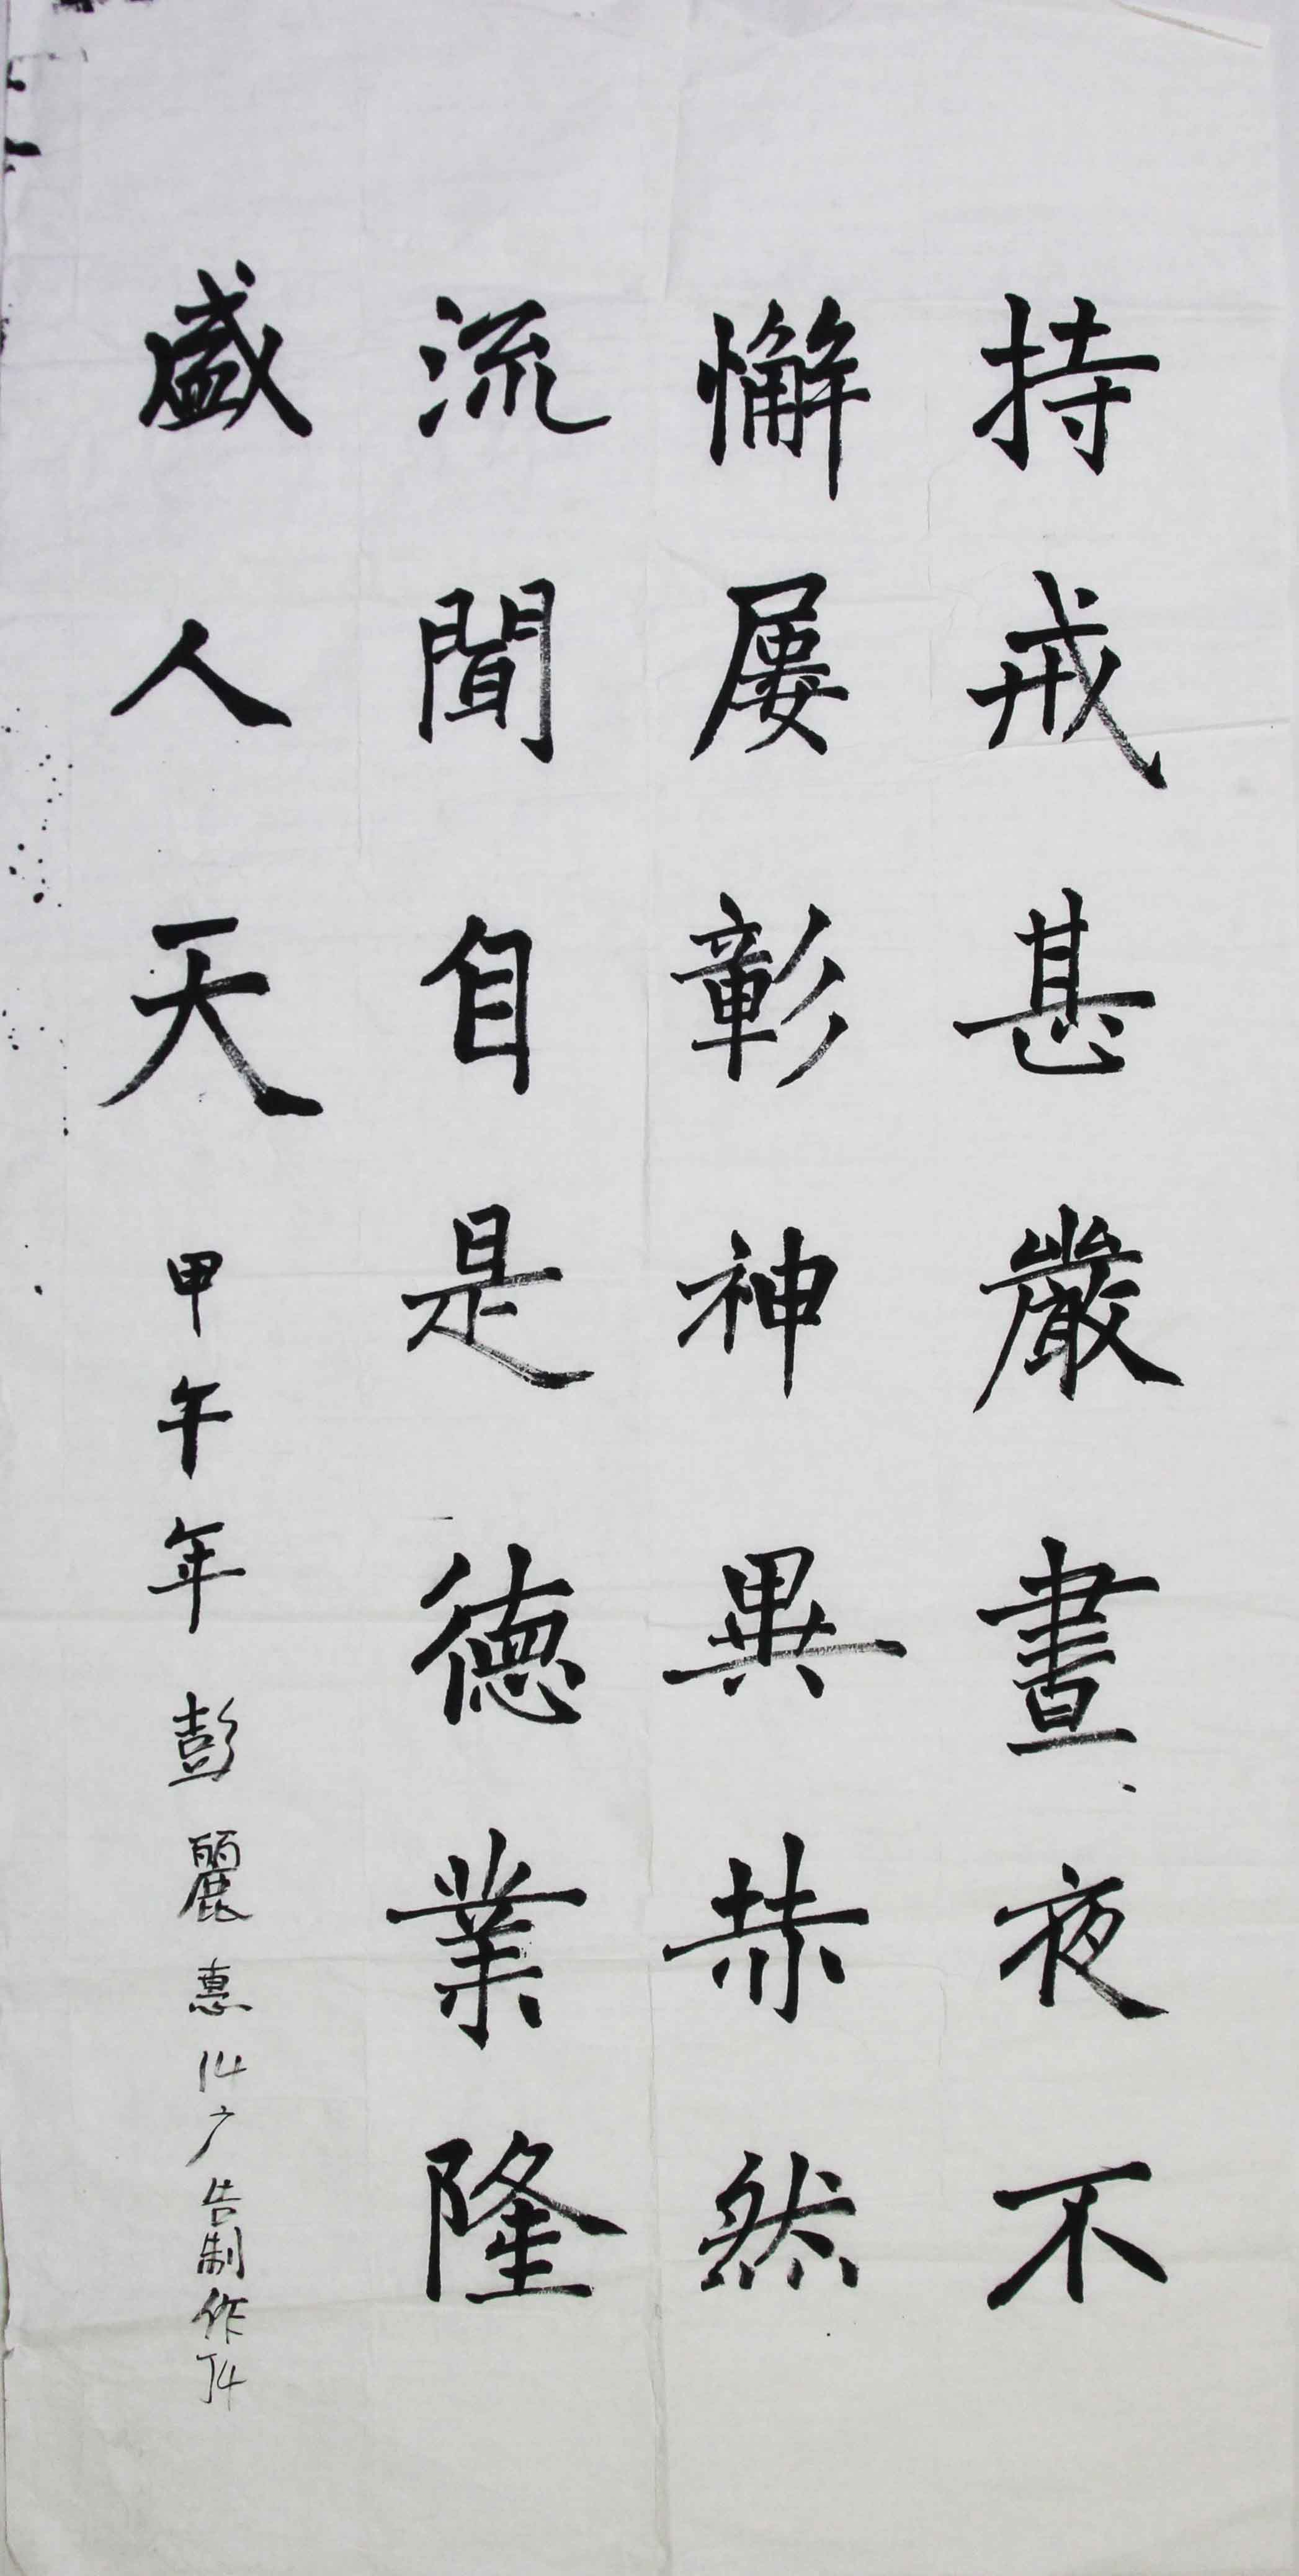 持戒甚嚴晝夜不
懈屢彰神異恭然
流聞自是德業隆
盛人天
甲午年彭麗惠14广告制作J4